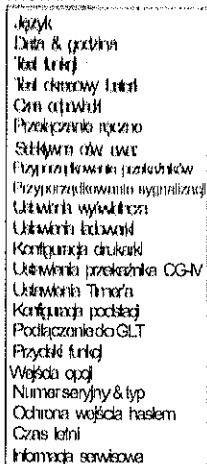 Język
Data & godzina
Test funkcji
Test okresowy baterii
Czas
Przełączanie ręczne
Selektywne
Przyporządkowanie przekaźników
Przyporządkowanie sygnalizacji
Ustawienia wyświetlacza
Ustawienia ładowarki
Konfiguracja drukarki
Ustawienia przekaźnika CG-IV
Ustawienia Timer'a
Konfiguracja podstacji
Podłączenie do GLT
Przyciski funkcji
Wejścia opcji
Numer seryjny & typ
Ochrona wejścia hasłem
Czas letni
Informacja serwisowa